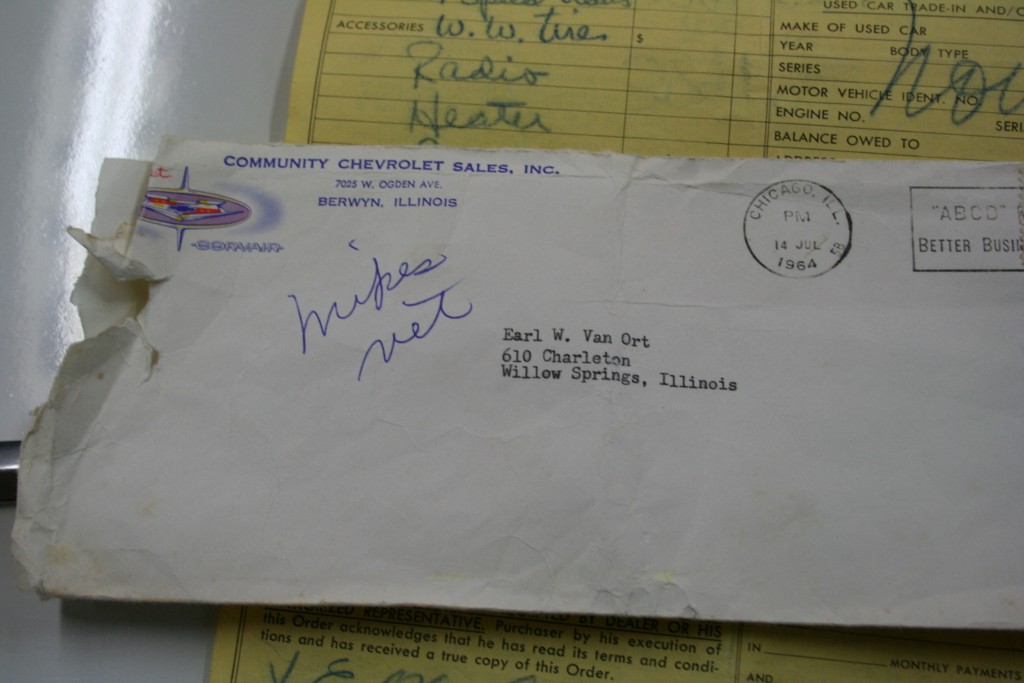 ACCESSORIES W. W. Tires $
Radio
Heater
USED CAR TRADE-IN AND/O
MAKE OF USED CAR
YEAR BODY TYPE
SERIES
MOTOR VEHICLE IDENT. NO.
ENGINE NO. SERI
BALANCE OWED TO
COMMUNITY CHEVROLET SALES, INC.
7025 W. OGDEN AVE.
BERWYN, ILLINOIS
CORVAIR
mikes
vet
CHICAGO, ILL.
PM
14 JUL
1964
"ABCD"
BETTER BUSI
Earl W. Van Ort
610 Charleton
Willow Springs, Illinois
REPRESENTATIVE. Purchaser by his execution of
this Order acknowledges that he has read its terms and condi-
tions and has received a true copy of this Order.
IN MONTHLY PAYMENTS
AND